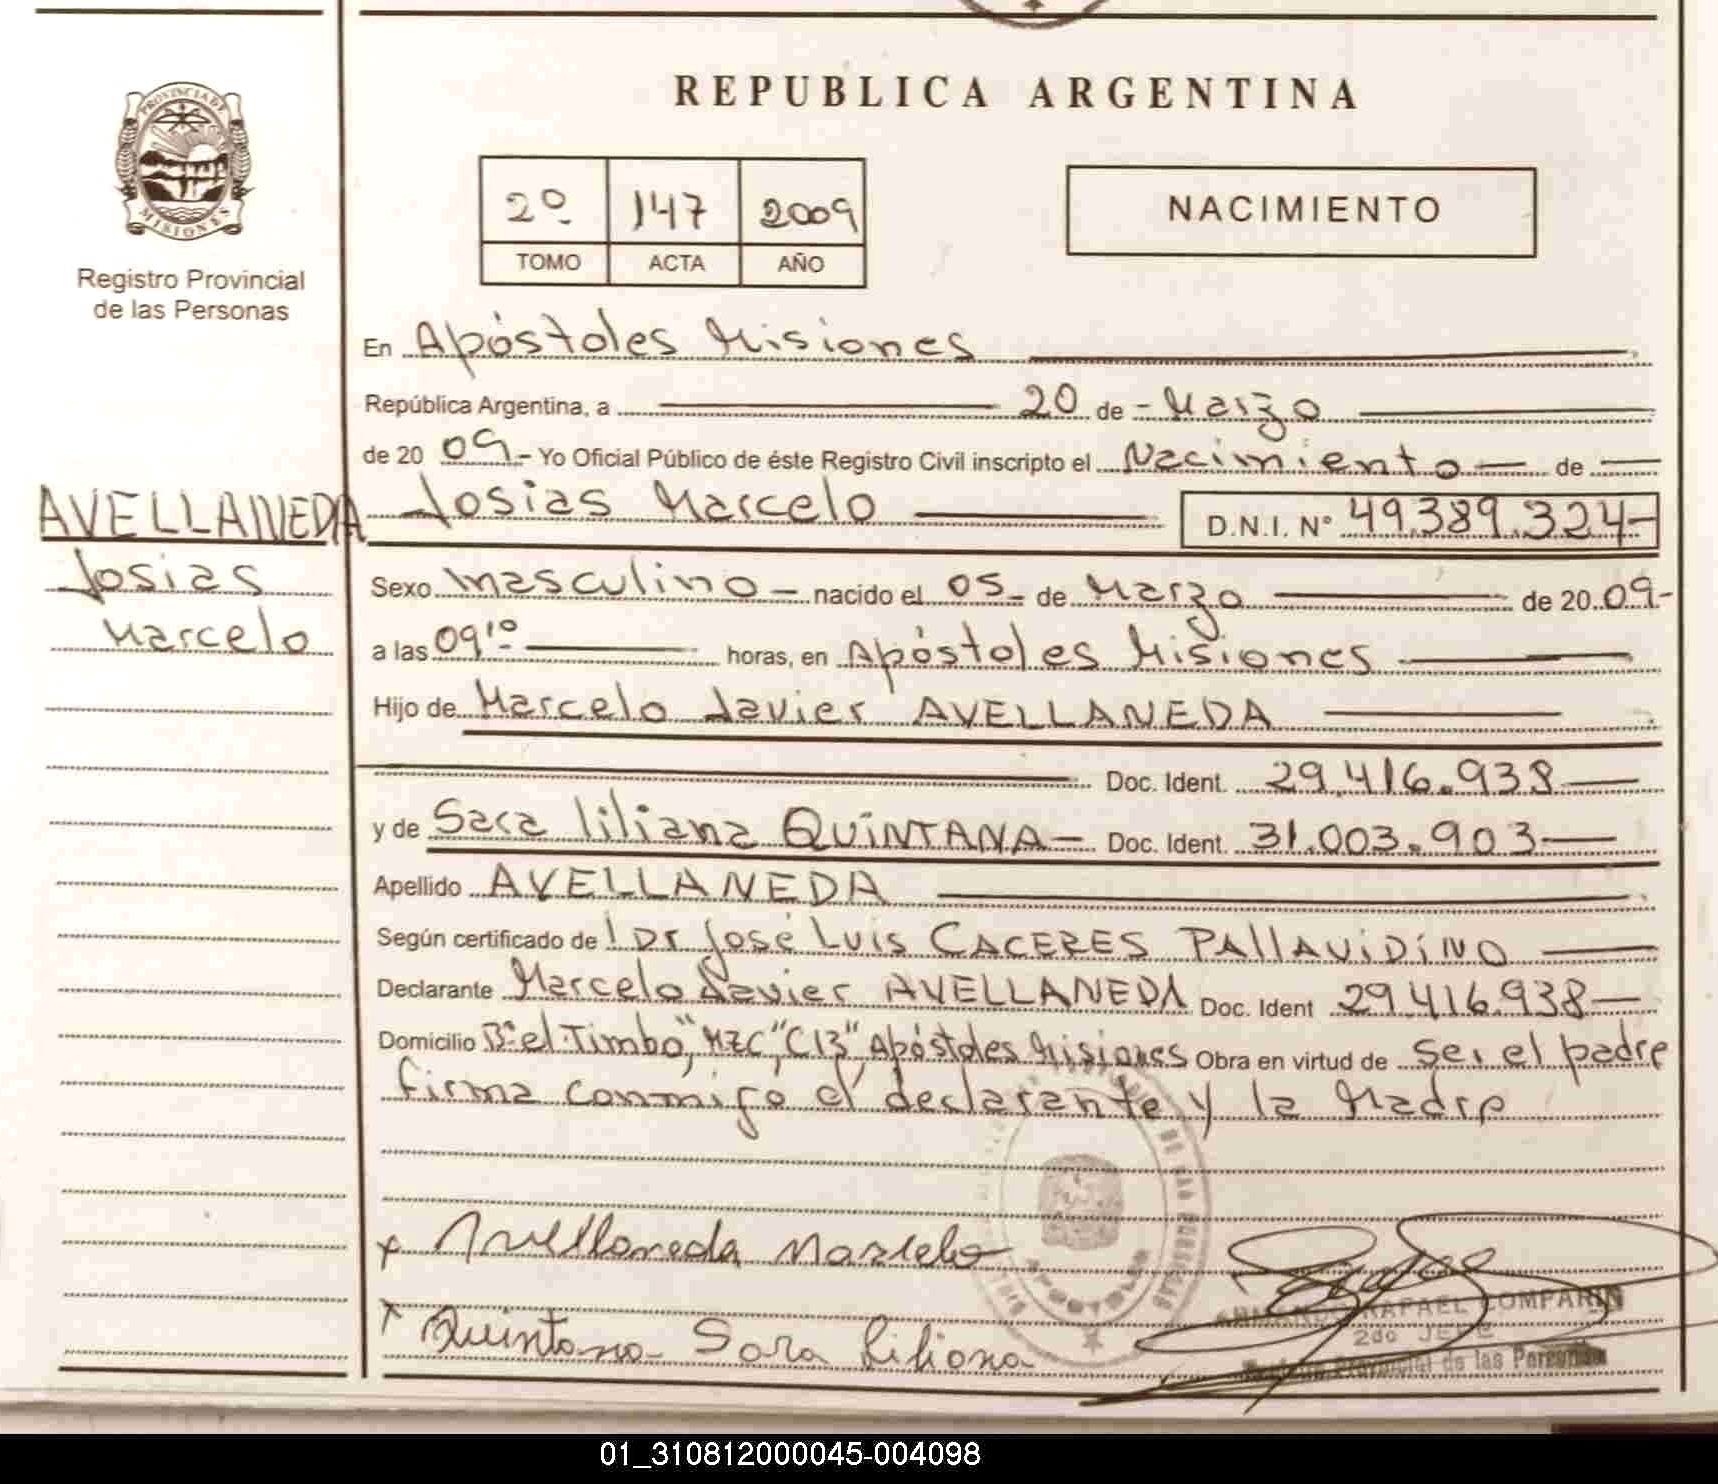 REPUBLICA ARGENTINA
PROVINCIA DE
MISIONES
Registro Provincial
de las Personas
2º 147 2009
TOMO ACTA AÑO
NACIMIENTO
En Apóstoles Misiones
República Argentina, a 20 de - Marzo
de 20 09.- Yo Oficial Público de éste Registro Civil inscripto el Nacimiento — de —
AVELLANEDA
Josias
Marcelo
Josias Marcelo — D.N.I. N° 49.389.324-
Sexo masculino — nacido el 05 - de Marzo — de 20 09.-
a las 09¹⁰ — horas, en Apóstoles Misiones —
Hijo de Marcelo Javier AVELLANEDA —
Doc. Ident. 29.416.938 —
y de Sara liliana QUINTANA — Doc. Ident. 31.003.903 —
Apellido AVELLANEDA —
Según certificado de l Dr José Luis CACERES PAllAViDiNO —
Declarante Marcelo Javier AVELLANEDA Doc. Ident 29.416.938 —
Domicilio Bº el Timbó, "MZC", "C13" Apóstoles Misiones Obra en virtud de ser el padre
firma conmigo el declarante y la Madre
x Avellaneda Marcelo
x Quintana Sara Liliana
RAFAEL COMPARIN
2do JEFE
Provincial de las Personas
APOSTOLES
01_310812000045-004098